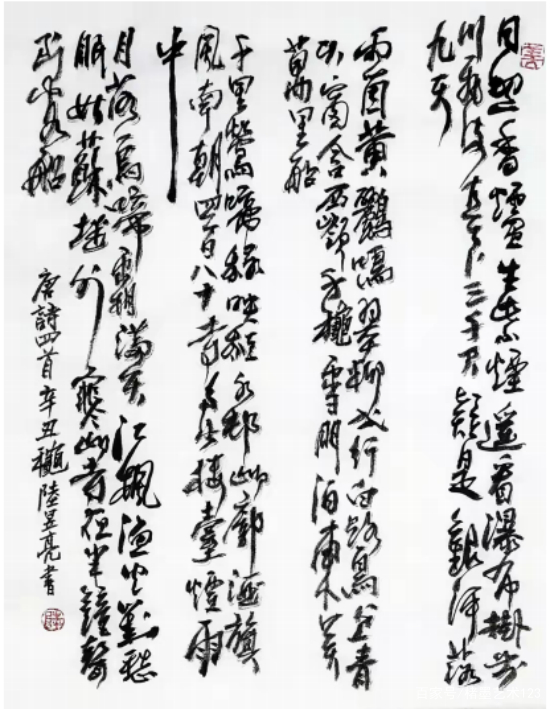 日照香爐生紫煙遥看瀑布掛前
川飛流直下三千尺疑是銀河落
九天
兩箇黃鸝鳴翠柳一行白鷺上青
天窗含西嶺千穐雪門泊東吳
萬里船
千里鶯啼綠映紅水邨山郭酒旗
風南朝四百八十寺多少樓臺煙雨
中
月落烏啼霜滿天江楓漁火對愁
眠姑蘇城外寒山寺夜半鐘聲
到客船
唐詩四首辛丑穐陸昱亮書